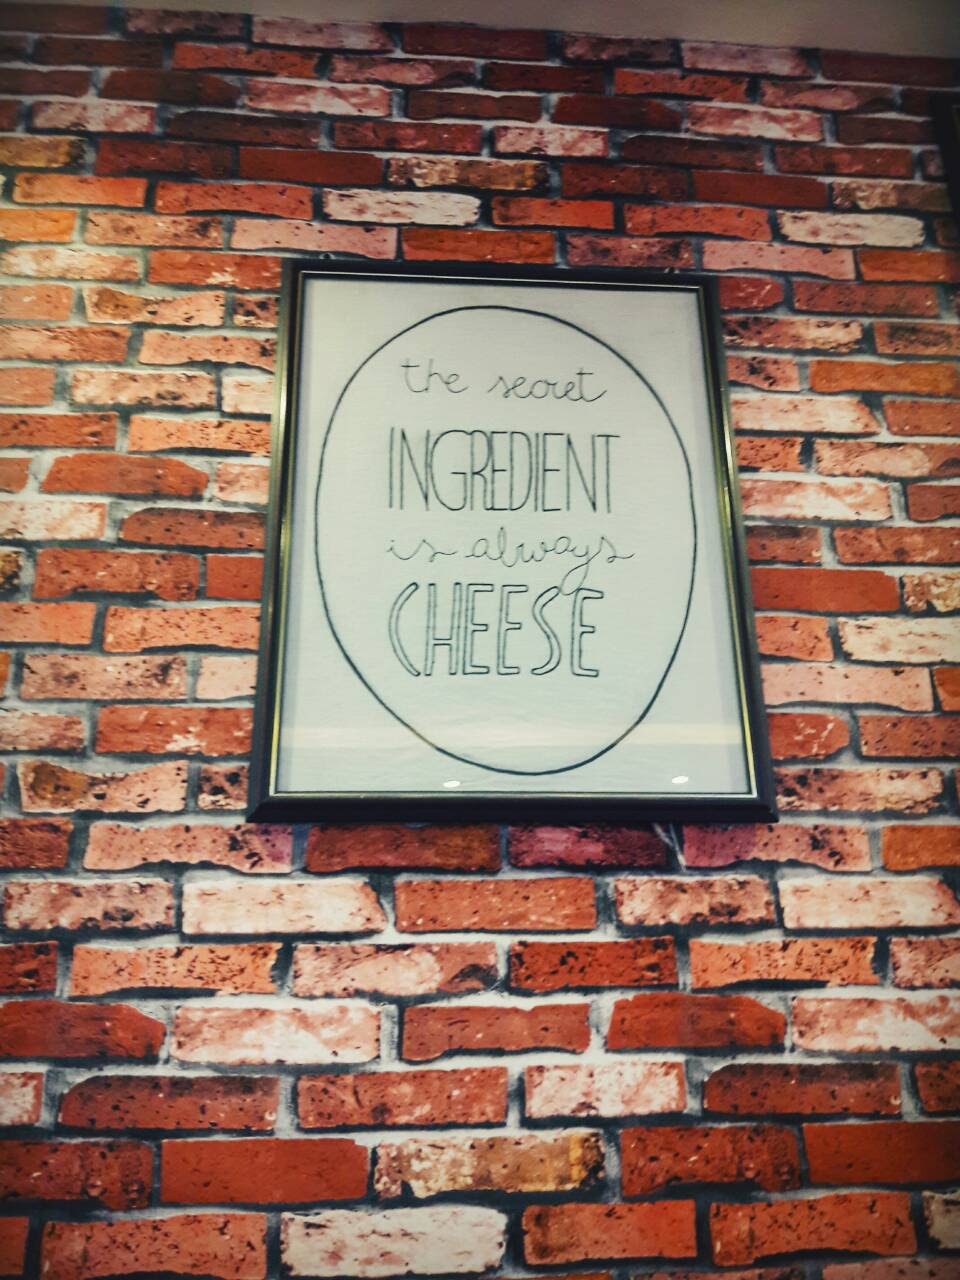 the secret
INGREDIENT
is always
CHEESE